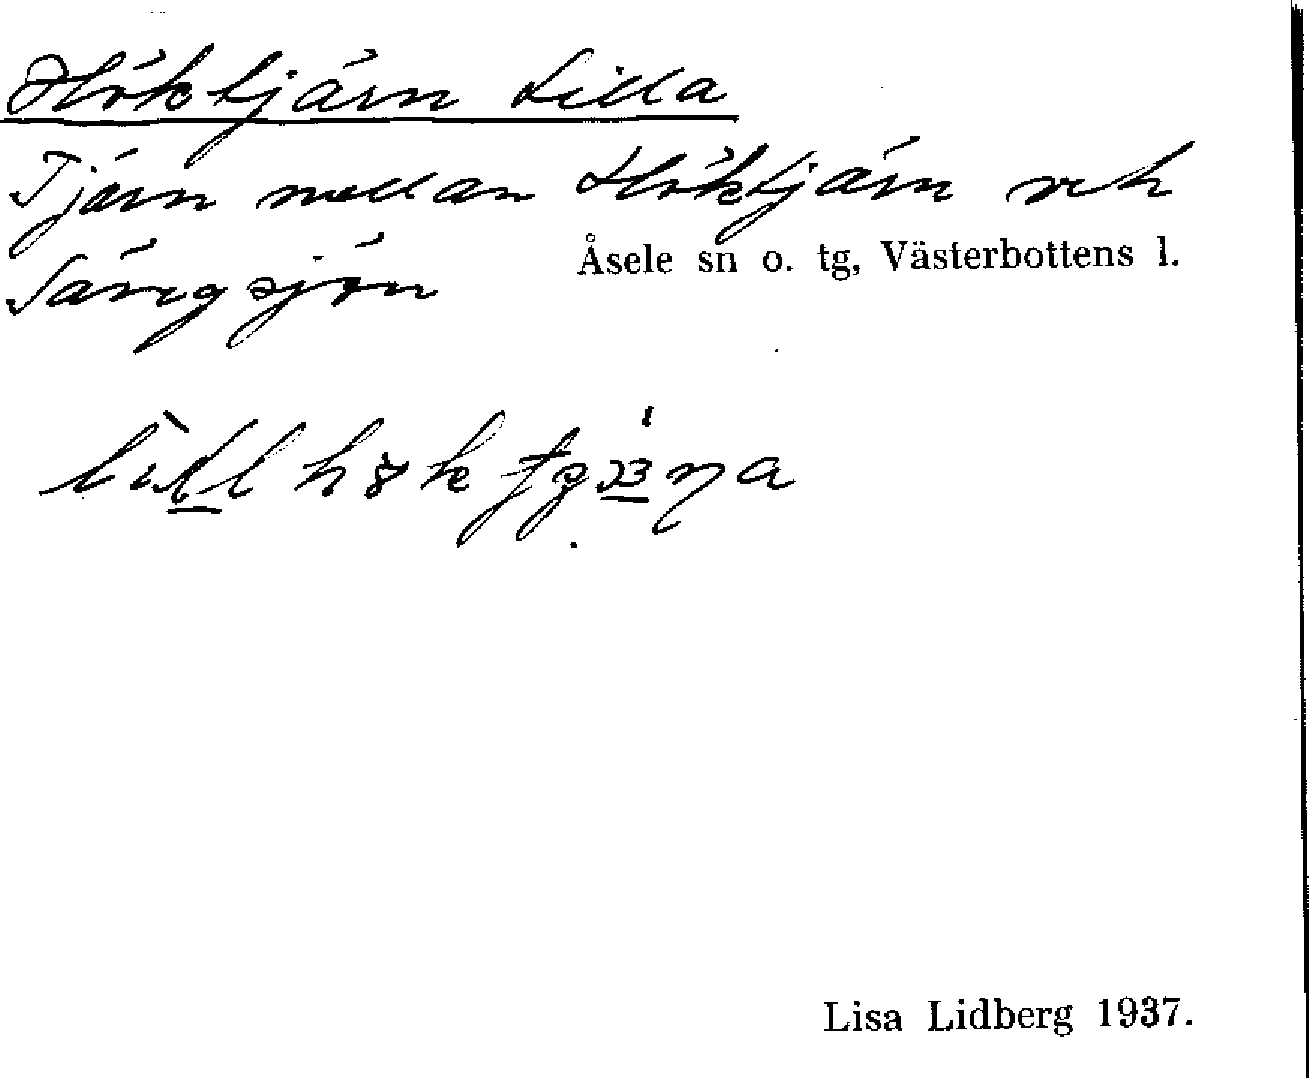 Höktjärn Lilla
Tjärn mellan Höktjärn och
Särgsjön
Åsele sn o. tg, Västerbottens l.
Lisa Lidberg 1937.